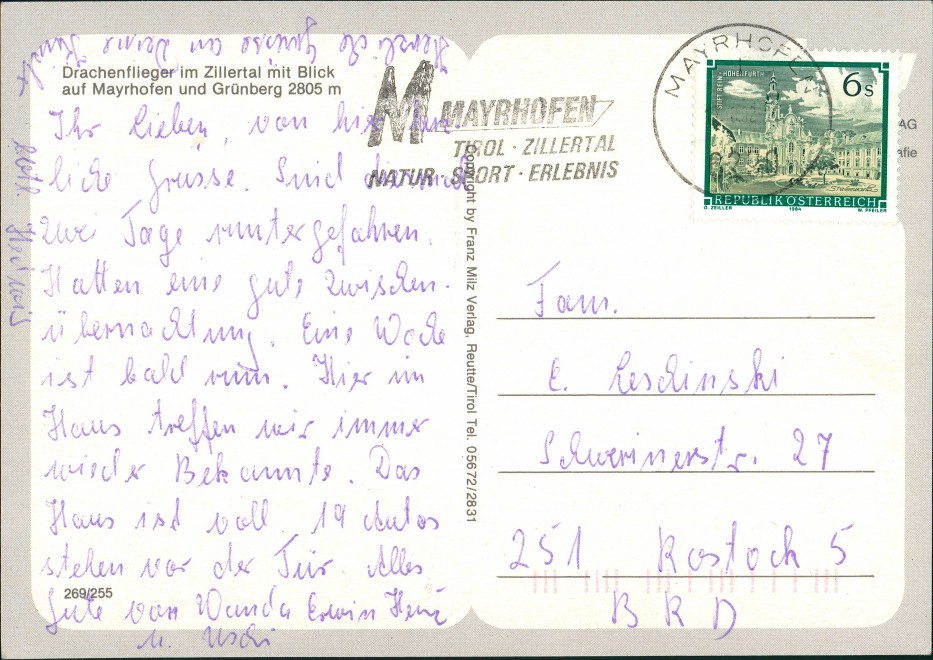 Herzliche Grüsse an Deine
Drachenflieger im Zillertal mit Blick
auf Mayrhofen und Grünberg 2805 m
Ihr Lieben, von hier
liche Grüsse. Sind
zwei Tage runtergefahren.
Hatten eine gute Zwischen-
übernachtung. Eine Woche
ist bald rum. Hier im
Haus treffen wir immer
wieder Bekannte. Das
Haus ist voll. 19 Autos
stehen vor der Tür. Alles
269/255
Gute von Wanda Erwin Heinz
u. Uschi
Hedwig
Copyright by Franz Milz Verlag, Reutte/Tirol Tel. 05672/2831
M MAYRHOFEN
TIROL · ZILLERTAL
NATUR · SPORT · ERLEBNIS
MAYRHOFEN
STIFT REIN - HOHENFURTH
6 S
REPUBLIK ÖSTERREICH
O. ZEILLER 1984 W. PFEILER
AG
afie
Fam.
E. Leschinski
Schwerinerstr. 27
251 Rostock 5
BRD